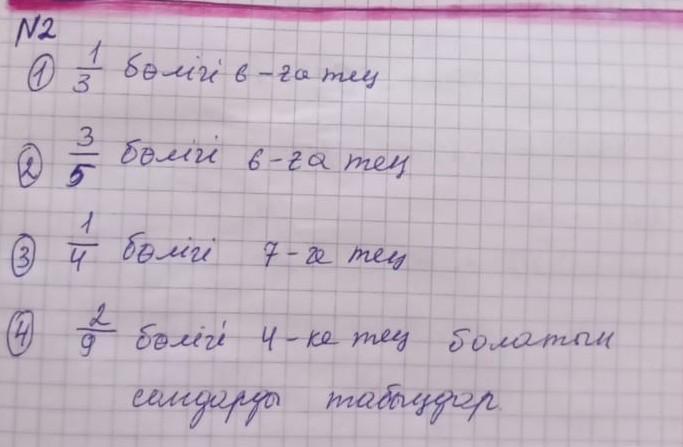 N2
① 1/3 бөлігі 6-ға тең
② 3/5 бөлігі 6-ға тең
③ 1/4 бөлігі 7-ге тең
④ 2/9 бөлігі 4-ке тең болатын
сандарды табыңдар.